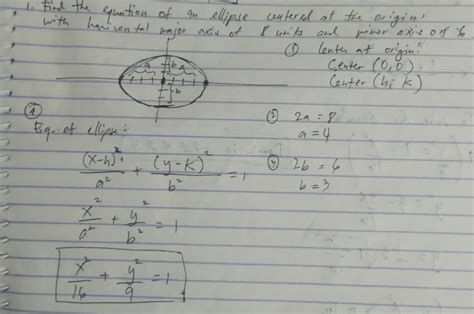 1. Find the equation of an ellipse centered at the origin,
with horizontal major axis of 8 units and minor axis of 6
① Center at origin:
Center (0,0)
Center (h, k)
a a b
b
② 2a = 8
a = 4
③ 2b = 6
b = 3
④
Eq. of ellipse:
(x-h)²/a² + (y-k)²/b² = 1
x²/a² + y²/b² = 1
x²/16 + y²/9 = 1